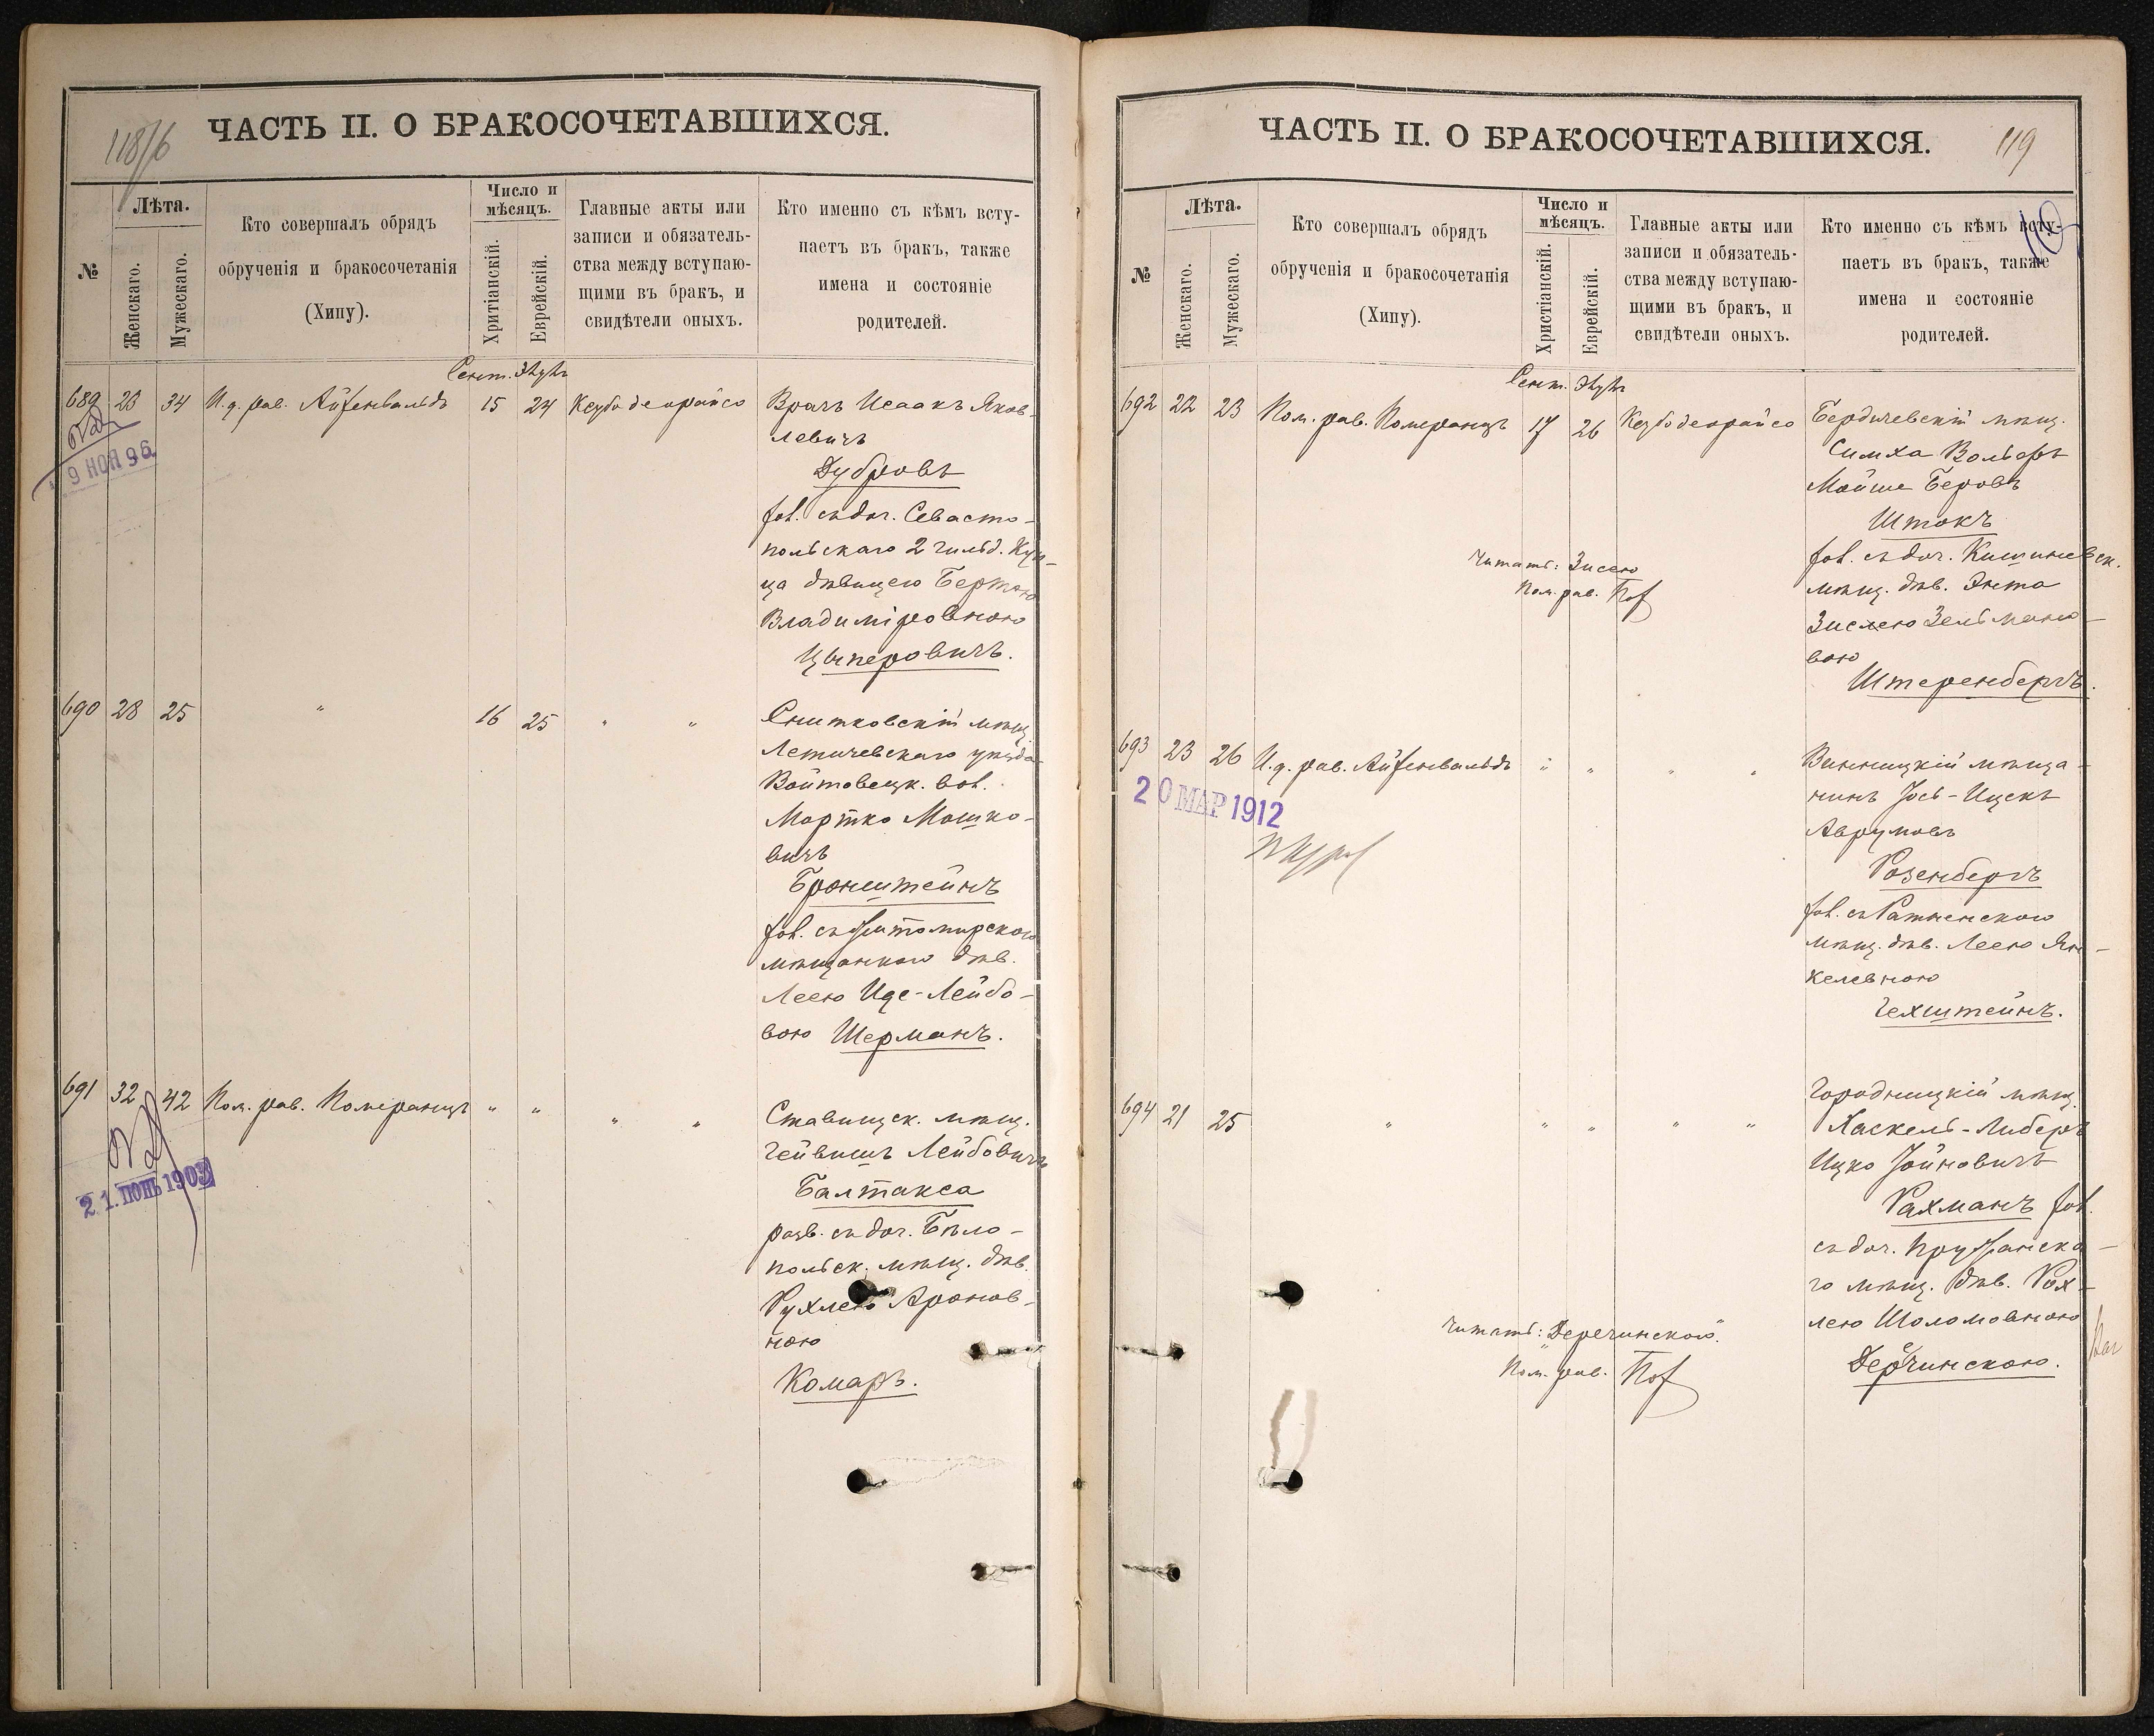 118/б
ЧАСТЬ II. О БРАКОСОЧЕТАВШИХСЯ.
№
Лѣта.
Женскаго.
Мужескаго.
Кто совершалъ обрядъ
обрученія и бракосочетанія
(Хипу).
Число и
мѣсяцъ.
Хритіанскій.
Еврейскій.
Главные акты или
записи и обязатель-
ства между вступаю-
щими въ бракъ, и
свидѣтели оныхъ.
Кто именно съ кѣмъ всту-
паетъ въ бракъ, также
имена и состояніе
родителей.
Сент. Элулъ
689 23 34 И.д. рав. Айзенвальдъ 15 24 Кезубодеорайсо Врачъ Исаакъ Яков-
левичъ
Дубровъ
9 НОЯ 96
хол. съ доч. Севасто-
польскаго 2 гильд. Куп-
ца дѣвицею Бертою
Владиміровною
Цыперовичъ.
690 28 25 " 16 25 " " Снитковскій мѣщ.
Летичевскаго уѣзда
Войтовецк. вол.
Мортко Мошко-
вичъ
Бронштейнъ
хол. съ Житомирскою
мѣщанкою дѣв.
Леею Ице-Лейбо-
вою Шерманъ.
691 32 42 Пом. рав. Померанцъ " " " " Ставищск. мѣщ.
Гейвишъ Лейбовичъ
Балтакса
21. ІЮНЬ 1903
разв. съ доч. Бѣло-
польск. мѣщ. дѣв.
Рухлею Аронов-
ною
Комаръ.
ЧАСТЬ II. О БРАКОСОЧЕТАВШИХСЯ.
119
№
Лѣта.
Женскаго.
Мужескаго.
Кто совершалъ обрядъ
обрученія и бракосочетанія
(Хипу).
Число и
мѣсяцъ.
Христіанскій.
Еврейскій.
Главные акты или
записи и обязатель-
ства между вступаю-
щими въ бракъ, и
свидѣтели оныхъ.
Кто именно съ кѣмъ всту-
паетъ въ бракъ, также
имена и состояніе
родителей.
Сент. Элулъ
692 22 23 Пом. рав. Померанцъ 17 26 Кезубодеорайсо Бердичевскій мѣщ.
Симха Вольфъ
Мойше Беровъ
Штокъ
хол. съ доч. Кишиневск.
мѣщ. дѣв. Энта
Зислею Зельмано-
вою
Штеренбергъ.
Читать: Зисею
Пом. рав.
693 23 26 И.д. рав. Айзенвальдъ " " " " Винницкій мѣща-
нинъ Іосъ-Ицекъ
Аврумовъ
Розенбергъ
20 МАР 1912
хол. съ Ратненскою
мѣщ. дѣв. Леею Ян-
келевною
Гехштейнъ.
694 21 25 " " " " " Городницкій мѣщ.
Хаскель-Либеръ
Ицко Іойновичъ
Рахманъ хол.
съ доч. Пружанска-
го мѣщ. дѣв. Рох-
лею Шоломовною
Дерчинскою.
Читать: "Деречинскою".
Пом. рав.